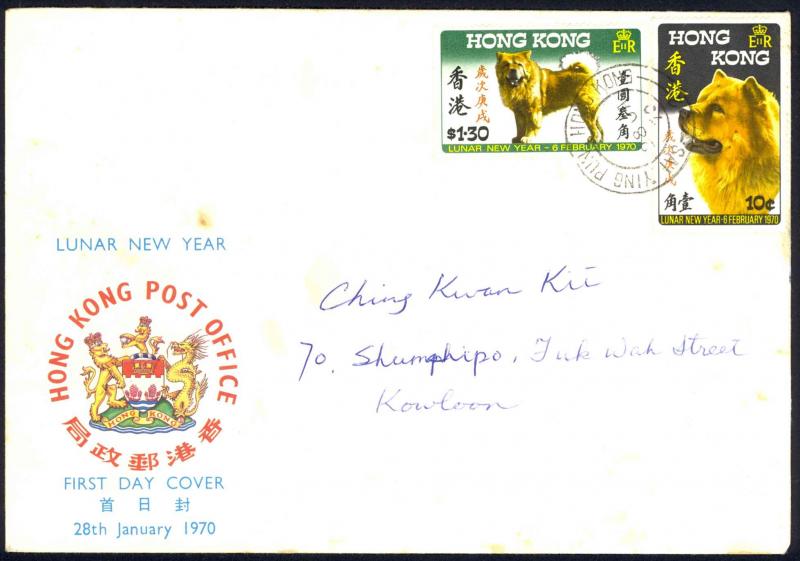 HONG KONG
EIIR
香港
歲次庚戌
壹圓叁角
$1·30
LUNAR NEW YEAR - 6 FEBRUARY 1970
HONG KONG
EIIR
香港
歲次庚戌
壹角
10¢
LUNAR NEW YEAR-6 FEBRUARY 1970
HONG KONG
YING PUN
LUNAR NEW YEAR
HONG KONG POST OFFICE
HONG KONG
香港郵政局
FIRST DAY COVER
首日封
28th January 1970
Ching Kwan Kit
70, Shumphipo, Fuk Wah Street
Kowloon